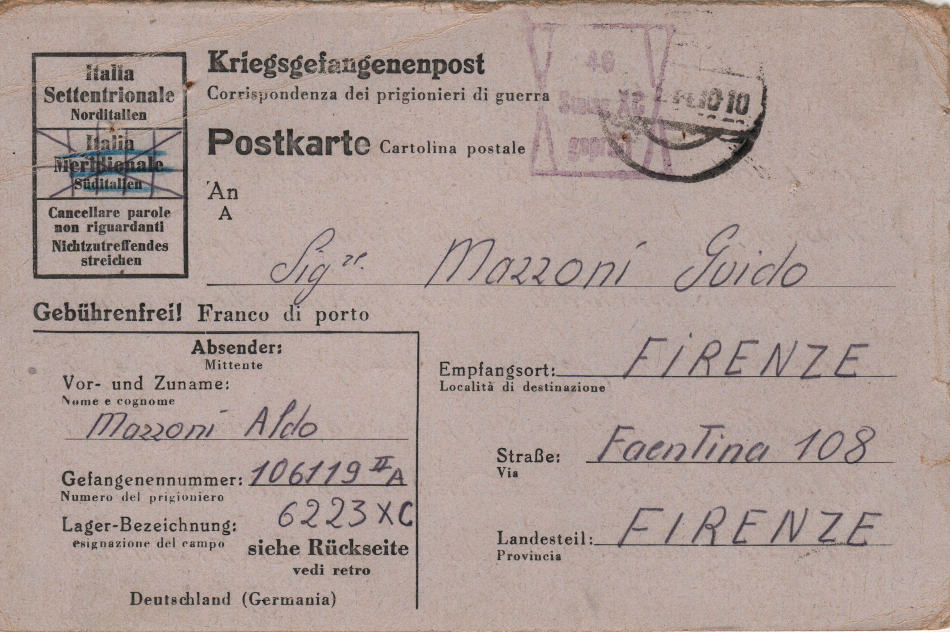 Italia
Settentrionale
Norditalien
Italia
Meridionale
Süditalien
Cancellare parole
non riguardanti
Nichtzutreffendes
streichen
Kriegsgefangenenpost
Corrispondenza dei prigionieri di guerra
Postkarte Cartolina postale
46
Stalag XC
geprüft
10
An
A
Sig.re Mazzoni Guido
Gebührenfrei! Franco di porto
Absender:
Mittente
Vor- und Zuname:
Nome e cognome
Mazzoni Aldo
Gefangenennummer: 106119 II A
Numero del prigioniero
6223 XC
Lager-Bezeichnung:
esignazione del campo
siehe Rückseite
vedi retro
Deutschland (Germania)
Empfangsort: FiRENZE
Località di destinazione
Straße: Faentina 108
Via
Landesteil: FIRENZE
Provincia